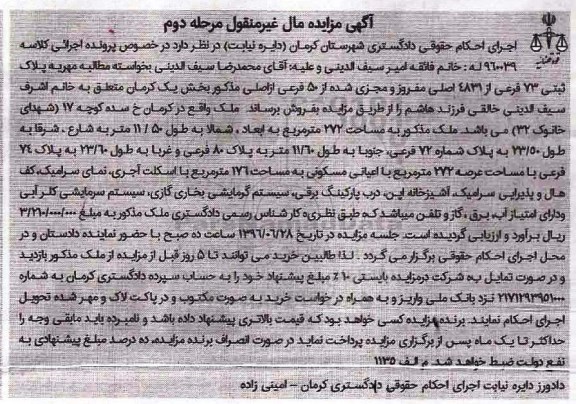 آگهی مزایده مال غیرمنقول مرحله دوم
اجرای احکام حقوقی دادگستری شهرستان کرمان (دایره نیابت) در نظر دارد در خصوص پرونده اجرائی کلاسه
۹۶۰۰۳۹ له : خانم فائقه امیر سیف الدینی و علیه: آقای محمدرضا سیف الدینی بخواسته مطالبه مهریه پلاک
ثبتی ۷۳ فرعی از ۴۸۳۱ اصلی مفروز و مجزی شده از ۵۰ فرعی ازاصلی مذکور بخش یک کرمان متعلق به خانم اشرف
سیف الدینی خالقی فرزند هاشم را از طریق مزایده بفروش برساند ملک واقع در کرمان خ سده کوچه ۱۷ (شهدای
خانوک ۳۲) می باشد. ملک مذکور به مساحت ۲۷۲ مترمربع به ابعاد ، شمالا به طول ۵۰ / ۱۱ متر به شارع ، شرقا به
طول ۲۳/۵۰ به پلاک شماره ۷۲ فرعی، جنوبا به طول ۱۱/۶۰ متر به پلاک ۸۰ فرعی و غربا به طول ۲۳/۶۰ به پلاک ۷۴
فرعی با مساحت عرصه ۲۷۲ مترمربع با اعیانی مسکونی به مساحت ۱۷۶ مترمربع با اسکلت آجری، نمای سرامیک، کف
هال و پذیرایی سرامیک، آشپزخانه اپن، درب پارکینگ برقی، سیستم گرمایشی بخاری گازی، سیستم سرمایشی کلر آبی
ودارای امتیاز آب، برق، گاز و تلفن میباشد که طبق نظریه کارشناس رسمی دادگستری ملک مذکور به مبلغ ۳/۲۱۰/۰۰۰/۰۰۰
ریال برآورد و ارزیابی گردیده است. جلسه مزایده در تاریخ ۱۳۹۶/۰۶/۲۸ ساعت ده صبح با حضور نماینده دادستان و در
محل اجرای احکام حقوقی برگزار می گردد . لذا طالبین خرید می توانند تا ۵ روز قبل از مزایده از ملک مذکور بازدید
و در صورت تمایل به شرکت درمزایده بایستی ۱۰ ٪ مبلغ پیشنهاد خود را به حساب سپرده دادگستری کرمان به شماره
۲۱۷۱۲۹۳۹۵۱۰۰۰ نزد بانک ملی واریز و به همراه درخواست خرید به صورت مکتوب و در پاکت لاک و مهر شده تحویل
اجرای احکام نمایند. برنده مزایده کسی خواهد بود که قیمت بالاتری پیشنهاد داده باشد و نامبرده باید مابقی وجه را
حداکثر تا یک ماه پس از برگزاری مزایده پرداخت نماید در صورت انصراف برنده مزایده، ده درصد مبلغ پیشنهادی به
نفع دولت ضبط خواهد شد. م الف ۱۱۳۵
دادورز دایره نیابت اجرای احکام حقوقی دادگستری کرمان – امینی زاده